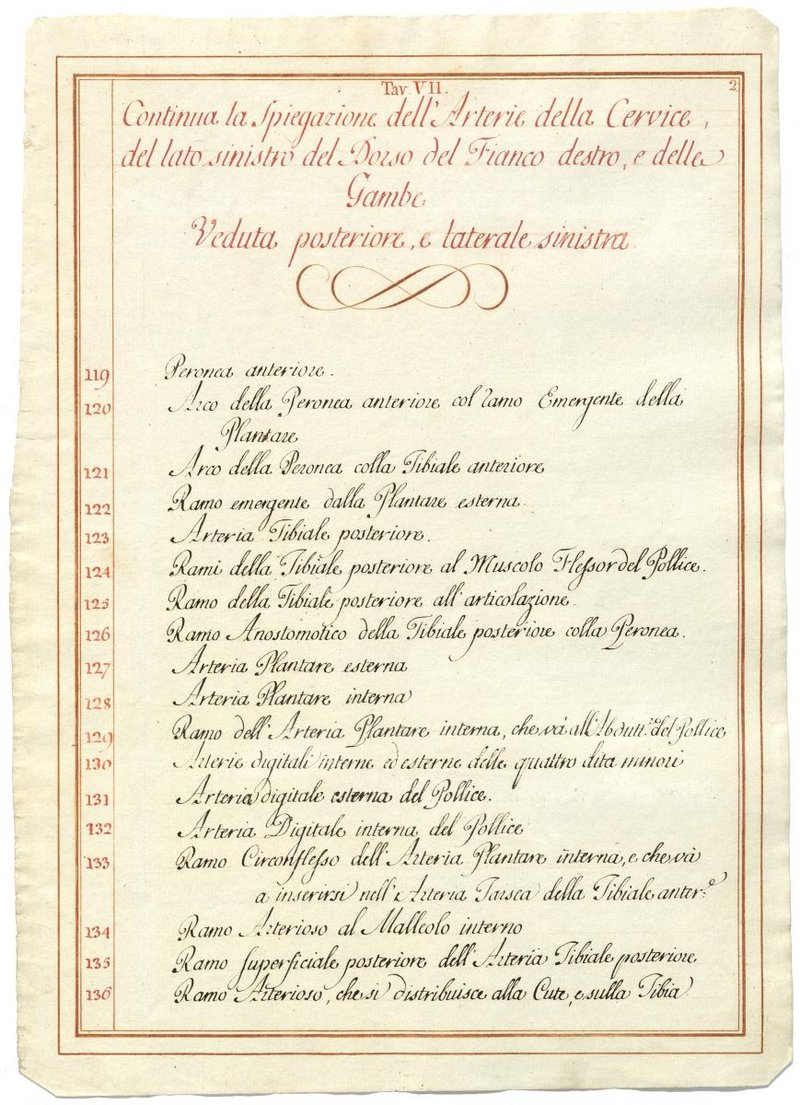 Tav. VII.
2
Continua la Spiegazione dell'Arterie della Cervice,
del lato sinistro del Dorso del Fianco destro, e delle
Gambe
Veduta posteriore, e laterale sinistra
119 Peronea anteriore.
120 Arco della Peronea anteriore col ramo Emergente della
Plantare
121 Arco della Peronea colla Tibiale anteriore
122 Ramo emergente dalla Plantare esterna
123 Arteria Tibiale posteriore.
124 Rami della Tibiale posteriore al Muscolo Flessor del Pollice.
125 Ramo della Tibiale posteriore all'articolazione.
126 Ramo Anostomotico della Tibiale posteriore colla Peronea.
127 Arteria Plantare esterna
128 Arteria Plantare interna
129 Ramo dell'Arteria Plantare interna, che và all'Abdutt.re del Pollice
130 Arterie digitali interne ed esterne delle quattro dita minori
131 Arteria digitale esterna del Pollice.
132 Arteria Digitale interna del Pollice
133 Ramo Circonflesso dell'Arteria Plantare interna, e che và
a inserirsi nell'Arteria Tarsea della Tibiale anter.e
134 Ramo Arterioso al Malleolo interno
135 Ramo superficiale posteriore dell'Arteria Tibiale posteriore
136 Ramo Arterioso, che si distribuisce alla Cute, e sulla Tibia